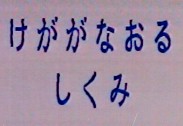 けががなおる
しくみ